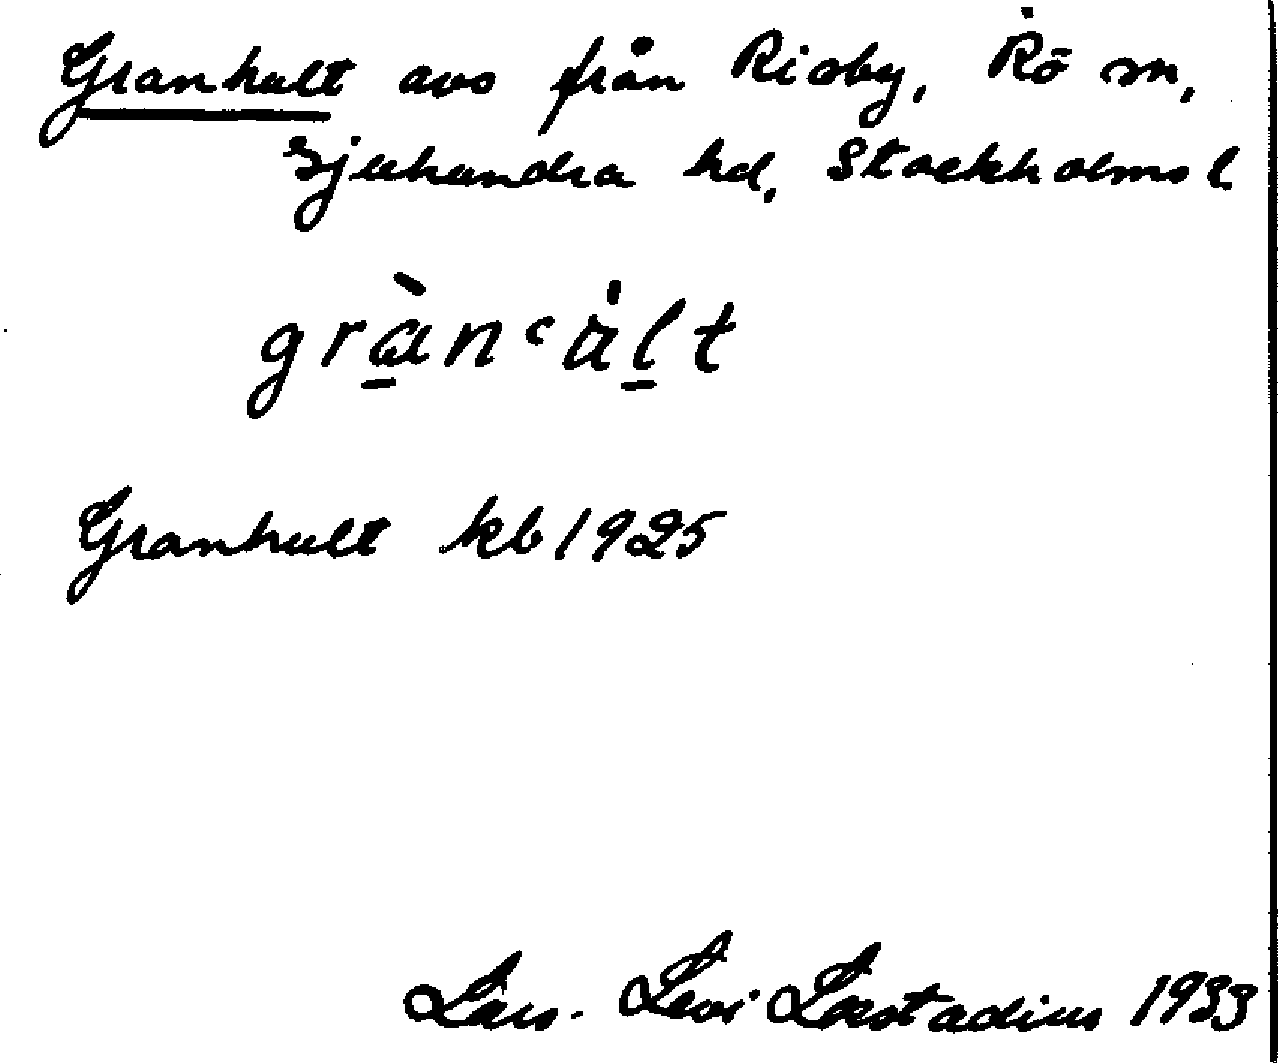 Granhult avs från Risby, Rö sn,
Sjuhundra hd, Stockholms l
Granhult kb 1925
Lars-Levi Læstadius 1933